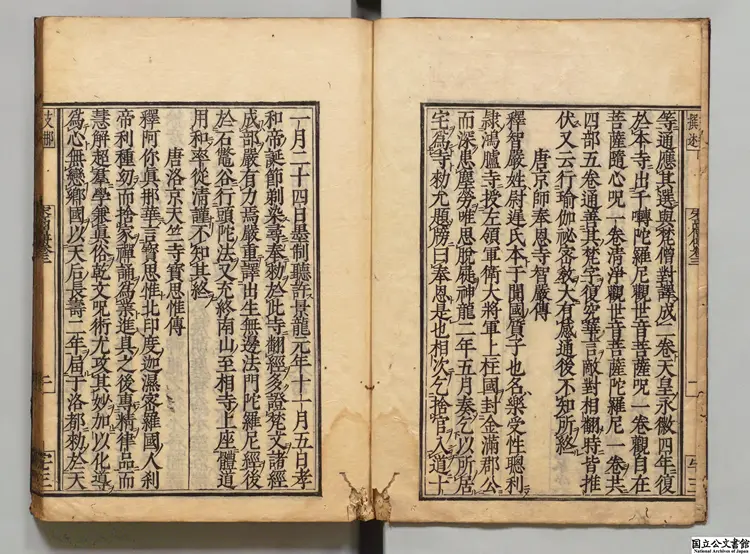 等通應其選與梵僧對譯成二卷天皇永徽四年復
於本寺出千囀陀羅尼觀世音菩薩呪一卷觀自在
菩薩隨心呪一卷清淨觀世音菩薩陀羅尼一卷共
四部五卷通善其梵字復究華言敵對相翻時皆推
伏又云行瑜伽祕密教大有感通後不知所終
唐京師奉恩寺智嚴傳
釋智嚴姓尉遲氏本于闐國質子也名樂受性聰利
隸鴻臚寺授左領軍衛大將軍上柱國封金滿郡公
而深患塵勞唯思脫屣神龍二年五月奏乞以所居
宅爲寺勅允題牓曰奉恩是也相次乞捨官入道十
一月二十四日墨制聽許景龍元年十一月五日孝
和帝誕節剃染尋奉勅於此寺翻經多證梵文諸經
成部嚴有力焉嚴重譯出生無邊法門陀羅尼經後
於石鼈谷行頭陀法又充終南山至相寺上座體道
用和率從清謹不知其終
唐洛京天竺寺寶思惟傳
釋阿你真那華言寶思惟北印度迦濕密羅國人刹
帝利種幼而捨家禪誦爲業進具之後專精律品而
慧解超羣學兼真俗乾文呪術尤攻其妙加以化導
爲心無戀鄉國以天后長壽二年屆于洛都勅於天
国立公文書館
National Archives of Japan